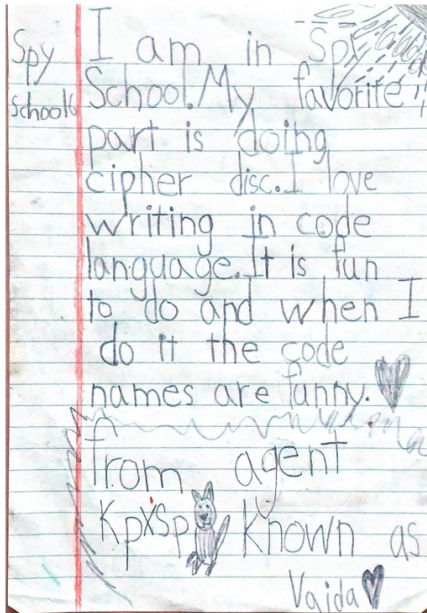 Spy
School
I am in Spy
School. My favorite
part is doing
cipher disc. I love
writing in code
language. It is fun
to do and when I
do it the code
names are funny.
from agent
Kpxsp Known as
Vaida